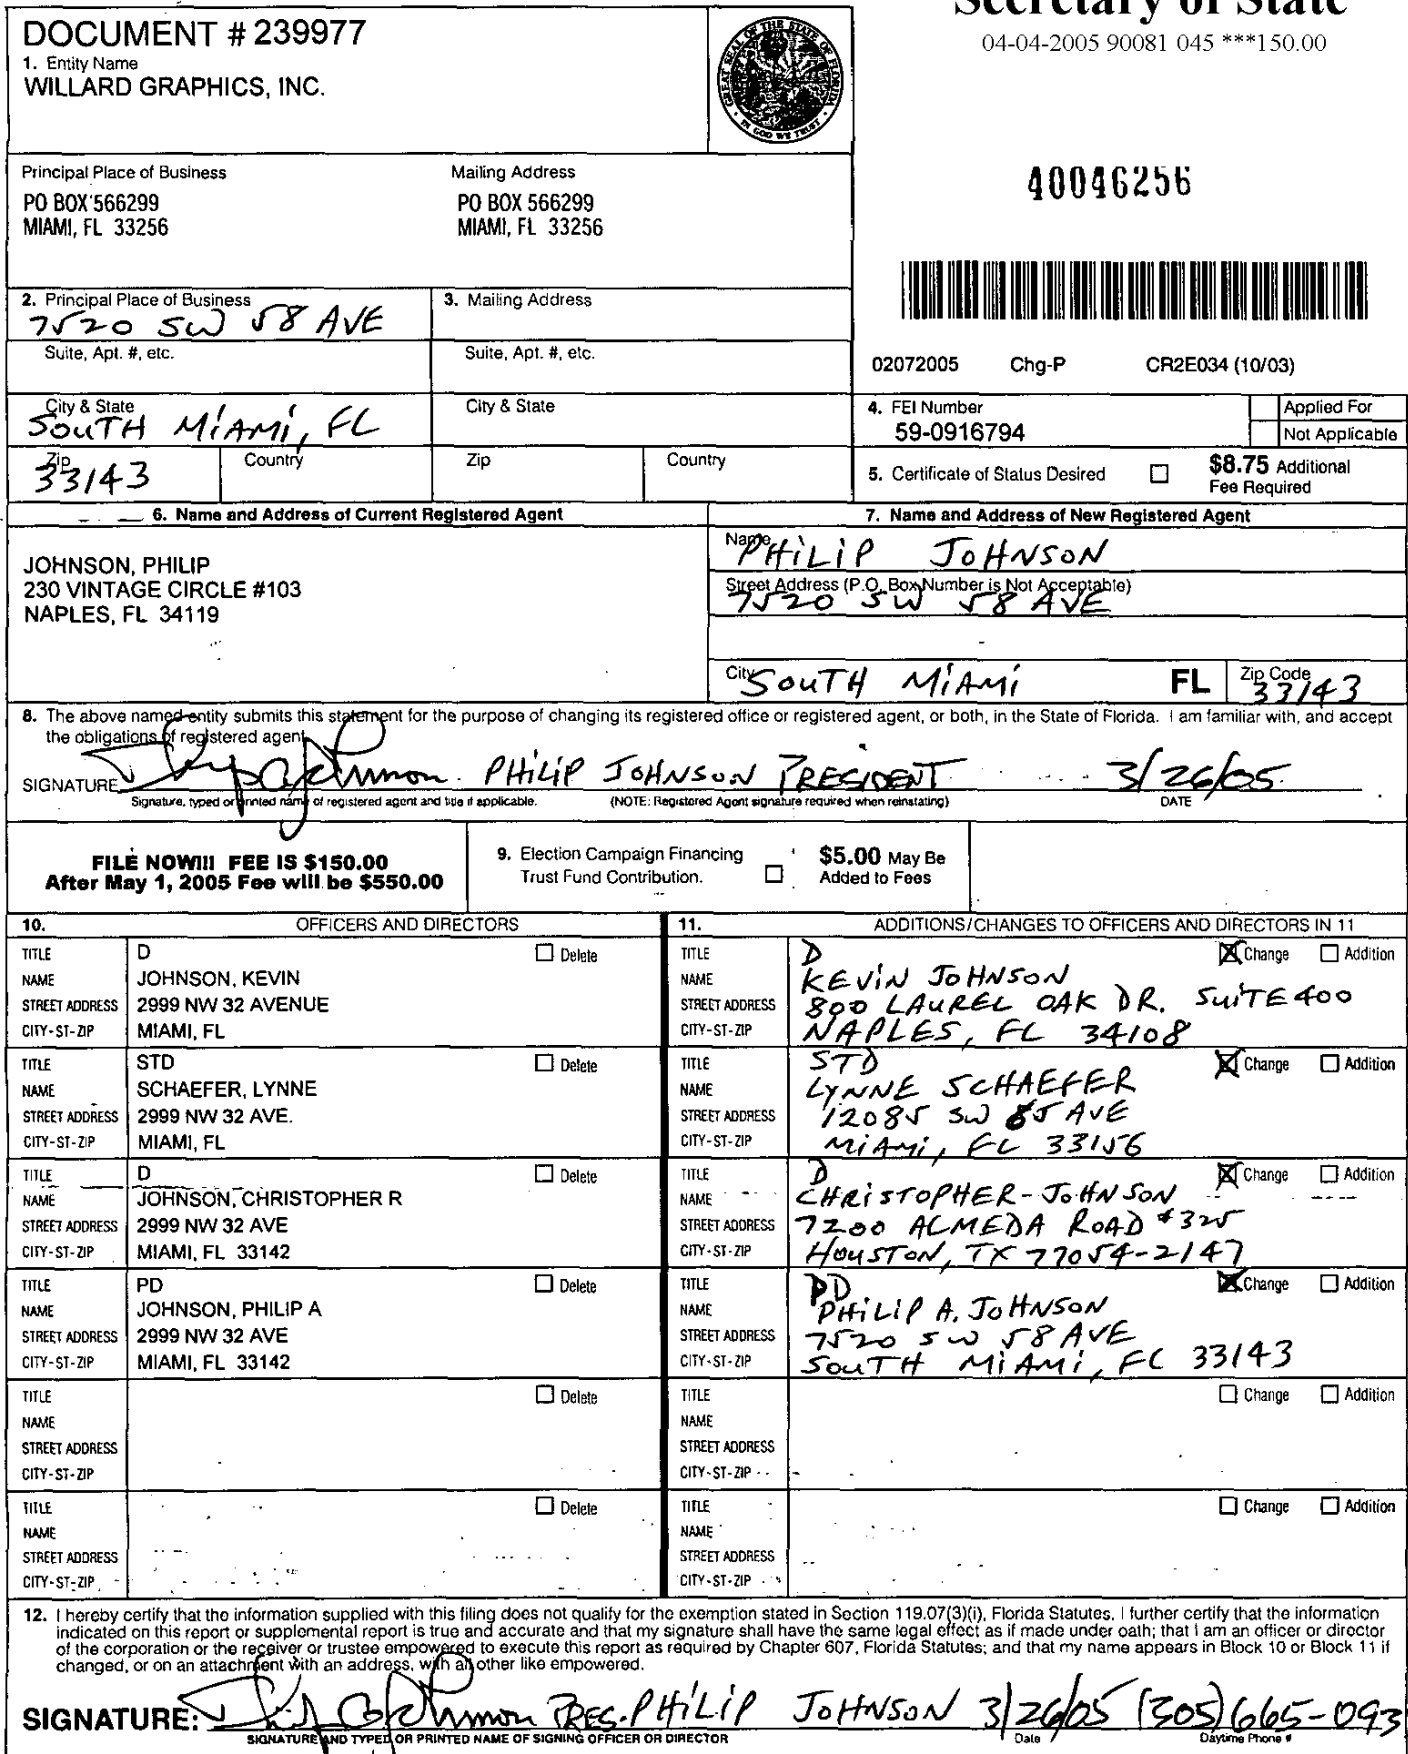 Secretary of State
04-04-2005 90081 045 ***150.00
DOCUMENT # 239977
1. Entity Name
WILLARD GRAPHICS, INC.
GREAT SEAL OF THE STATE OF FLORIDA
IN GOD WE TRUST
40046256
Principal Place of Business
PO BOX 566299
MIAMI, FL 33256
Mailing Address
PO BOX 566299
MIAMI, FL 33256
2. Principal Place of Business
7520 SW 58 AVE
3. Mailing Address
Suite, Apt. #, etc.
Suite, Apt. #, etc.
02072005 Chg-P CR2E034 (10/03)
City & State
SOUTH MIAMI, FL
City & State
4. FEI Number
59-0916794
Applied For
Not Applicable
Zip
33143
Country
Zip
Country
5. Certificate of Status Desired
$8.75 Additional
Fee Required
6. Name and Address of Current Registered Agent
JOHNSON, PHILIP
230 VINTAGE CIRCLE #103
NAPLES, FL 34119
7. Name and Address of New Registered Agent
Name
PHILIP JOHNSON
Street Address (P.O. Box Number is Not Acceptable)
7520 SW 58 AVE
City
SOUTH MIAMI
FL
Zip Code
33143
8. The above named entity submits this statement for the purpose of changing its registered office or registered agent, or both, in the State of Florida. I am familiar with, and accept
the obligations of registered agent
SIGNATURE PHILIP JOHNSON PRESIDENT 3/26/05
Signature, typed or printed name of registered agent and title if applicable. (NOTE: Registered Agent signature required when reinstating) DATE
FILE NOW!!! FEE IS $150.00
After May 1, 2005 Fee will be $550.00
9. Election Campaign Financing
Trust Fund Contribution.
$5.00 May Be
Added to Fees
10. OFFICERS AND DIRECTORS
TITLE D Delete
NAME JOHNSON, KEVIN
STREET ADDRESS 2999 NW 32 AVENUE
CITY-ST-ZIP MIAMI, FL
TITLE STD Delete
NAME SCHAEFER, LYNNE
STREET ADDRESS 2999 NW 32 AVE.
CITY-ST-ZIP MIAMI, FL
TITLE D Delete
NAME JOHNSON, CHRISTOPHER R
STREET ADDRESS 2999 NW 32 AVE
CITY-ST-ZIP MIAMI, FL 33142
TITLE PD Delete
NAME JOHNSON, PHILIP A
STREET ADDRESS 2999 NW 32 AVE
CITY-ST-ZIP MIAMI, FL 33142
TITLE Delete
NAME
STREET ADDRESS
CITY-ST-ZIP
TITLE Delete
NAME
STREET ADDRESS
CITY-ST-ZIP
11. ADDITIONS/CHANGES TO OFFICERS AND DIRECTORS IN 11
TITLE D Change Addition
NAME KEVIN JOHNSON
STREET ADDRESS 800 LAUREL OAK DR. SUITE 400
CITY-ST-ZIP NAPLES, FL 34108
TITLE STD Change Addition
NAME LYNNE SCHAEFER
STREET ADDRESS 12085 SW 85 AVE
CITY-ST-ZIP MIAMI, FL 33156
TITLE D Change Addition
NAME CHRISTOPHER-JOHNSON
STREET ADDRESS 7200 ALMEDA ROAD #325
CITY-ST-ZIP HOUSTON, TX 77054-2147
TITLE PD Change Addition
NAME PHILIP A. JOHNSON
STREET ADDRESS 7520 SW 58 AVE
CITY-ST-ZIP SOUTH MIAMI, FL 33143
TITLE Change Addition
NAME
STREET ADDRESS
CITY-ST-ZIP
TITLE Change Addition
NAME
STREET ADDRESS
CITY-ST-ZIP
12. I hereby certify that the information supplied with this filing does not qualify for the exemption stated in Section 119.07(3)(i), Florida Statutes. I further certify that the information
indicated on this report or supplemental report is true and accurate and that my signature shall have the same legal effect as if made under oath; that I am an officer or director
of the corporation or the receiver or trustee empowered to execute this report as required by Chapter 607, Florida Statutes; and that my name appears in Block 10 or Block 11 if
changed, or on an attachment with an address, with all other like empowered.
SIGNATURE: PRES. PHILIP JOHNSON 3/26/05 (305)665-093
SIGNATURE AND TYPED OR PRINTED NAME OF SIGNING OFFICER OR DIRECTOR Date Daytime Phone #